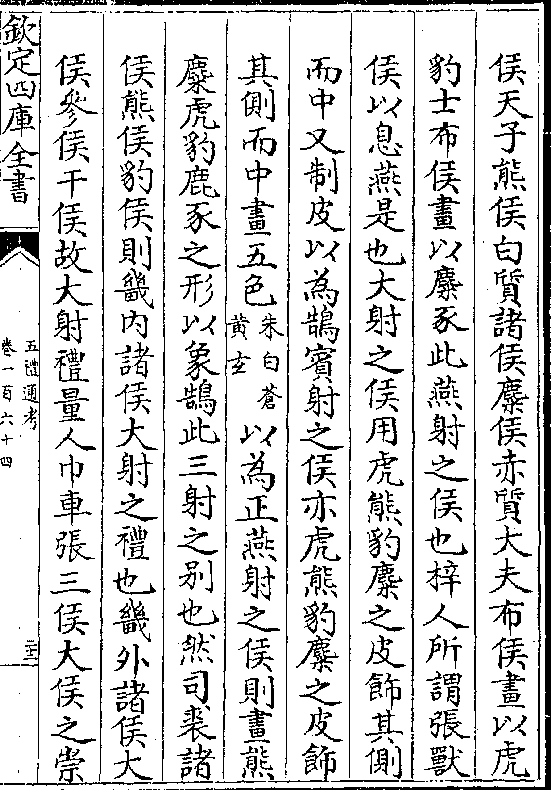 侯天子熊侯白質諸侯麋侯赤質大夫布侯畫以虎
豹士布侯畫以麋豕此燕射之侯也梓人所謂張獸
侯以息燕是也大射之侯用虎熊豹麋之皮飾其側
而中又制皮以為鵠賓射之侯亦虎熊豹麋之皮飾
其側而中畫五色朱白蒼黄玄以為正燕射之侯則畫熊
麋虎豹鹿豕之形以象鵠此三射之别也然司裘諸
侯熊侯豹侯則畿内諸侯大射之禮也畿外諸侯大
侯參侯干侯故大射禮量人巾車張三侯大侯之崇
欽定四庫全書
五禮通考
卷一百六十四